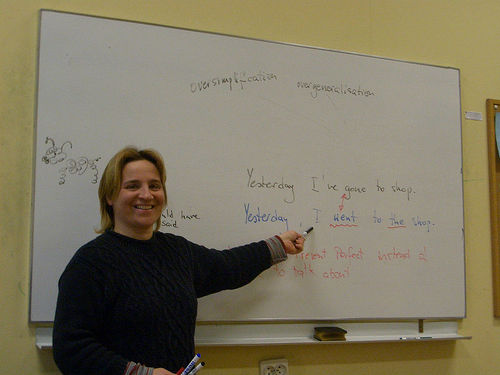 oversimplification overgeneralisation
Yesterday I've gone to shop.
Yesterday, I went to the shop.
uld have
said
resent Perfect instead of
to talk about